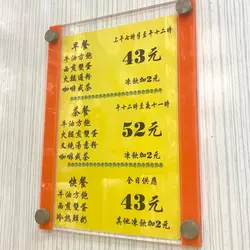 早餐
上午七時半至十二時
牛油方飽
西煎雙蛋
火腿通粉
咖啡或茶
43元
凍飲加2元
茶餐
下午十二時至晚十一時
牛油方飽
西煎雙蛋
叉燒湯意粉
咖啡或茶
52元
凍飲加2元
快餐
全日供應
牛油方飽
西煎雙蛋
冷熱鮮奶
43元
其他凍飲加2元